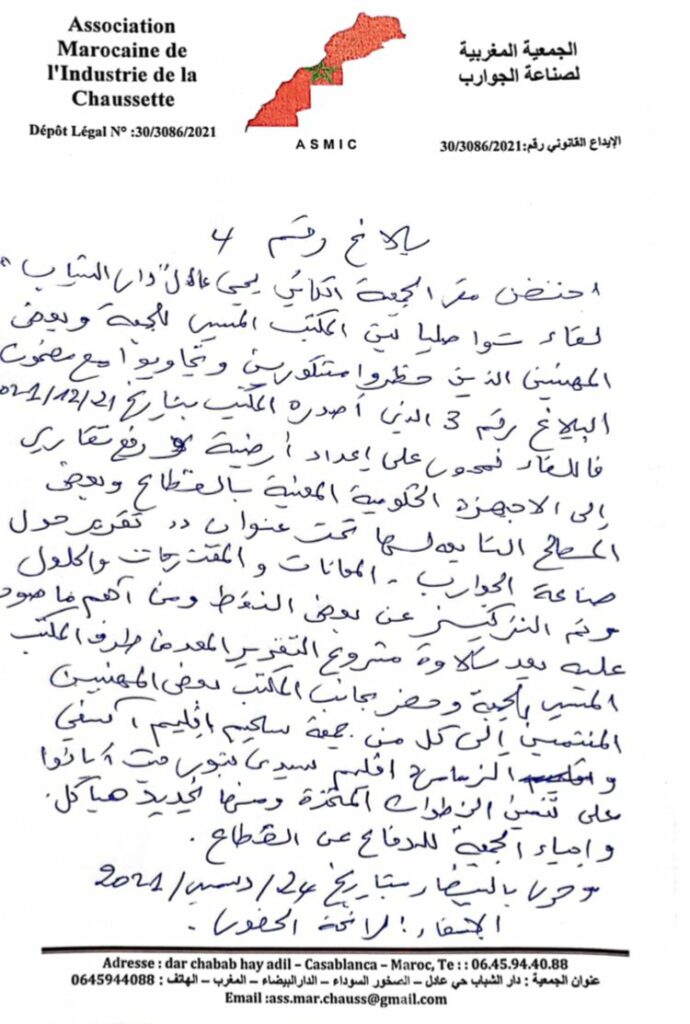 Association
Marocaine de
l'Industrie de la
Chaussette
Dépôt Légal N° :30/3086/2021
ASMIC
الجمعية المغربية
لصناعة الجوارب
الإيداع القانوني رقم:30/3086/2021
بلاغ رقم 4
احتضن مقر الجمعية الكائن بحي عادل "دار الشباب"
لقاء تواصليا بين المكتب المسير للجمعية وبعض
المهنيين الذين حظروا مشكورين وتجاوبوا مع مضمون
البلاغ رقم 3 الذي أصدره المكتب بتاريخ 2021/12/21
فاللقاء تمحور على إعداد أرضية و رفع تقارير
إلى الاجهزة الحكومية المعنية بالقطاع وبعض
المصالح التابعة لها تحت عنوان " تقرير حول
صناعة الجوارب - المعانات و المقترحات والحلول
وتم التركيز عن بعض النقط ومن أهم ما صودق
عليه بعد تلاوة مشروع التقرير المعد من طرف المكتب
المسير للجمعية وحضر بجانب المكتب بعض المهنيين
المنتمين إلى كل من جمعة سحيم اقليم آسفي
و الزمامرة اقليم سيدي بنور حيث أبانوا
على الخطوات المتخذة ومنها تجديد هياكل
وإحياء الجمعية للدفاع عن القطاع.
وحرر بالبيضاء بتاريخ 24/دسمبر/2021
الإمضاء: لائحة الحضور.
Adresse : dar chabab hay adil – Casablanca – Maroc, Te : : 06.45.94.40.88
عنوان الجمعية : دار الشباب حي عادل – الصخور السوداء – الدارالبيضاء – المغرب – الهاتف : 0645944088
Email :ass.mar.chauss@gmail.com